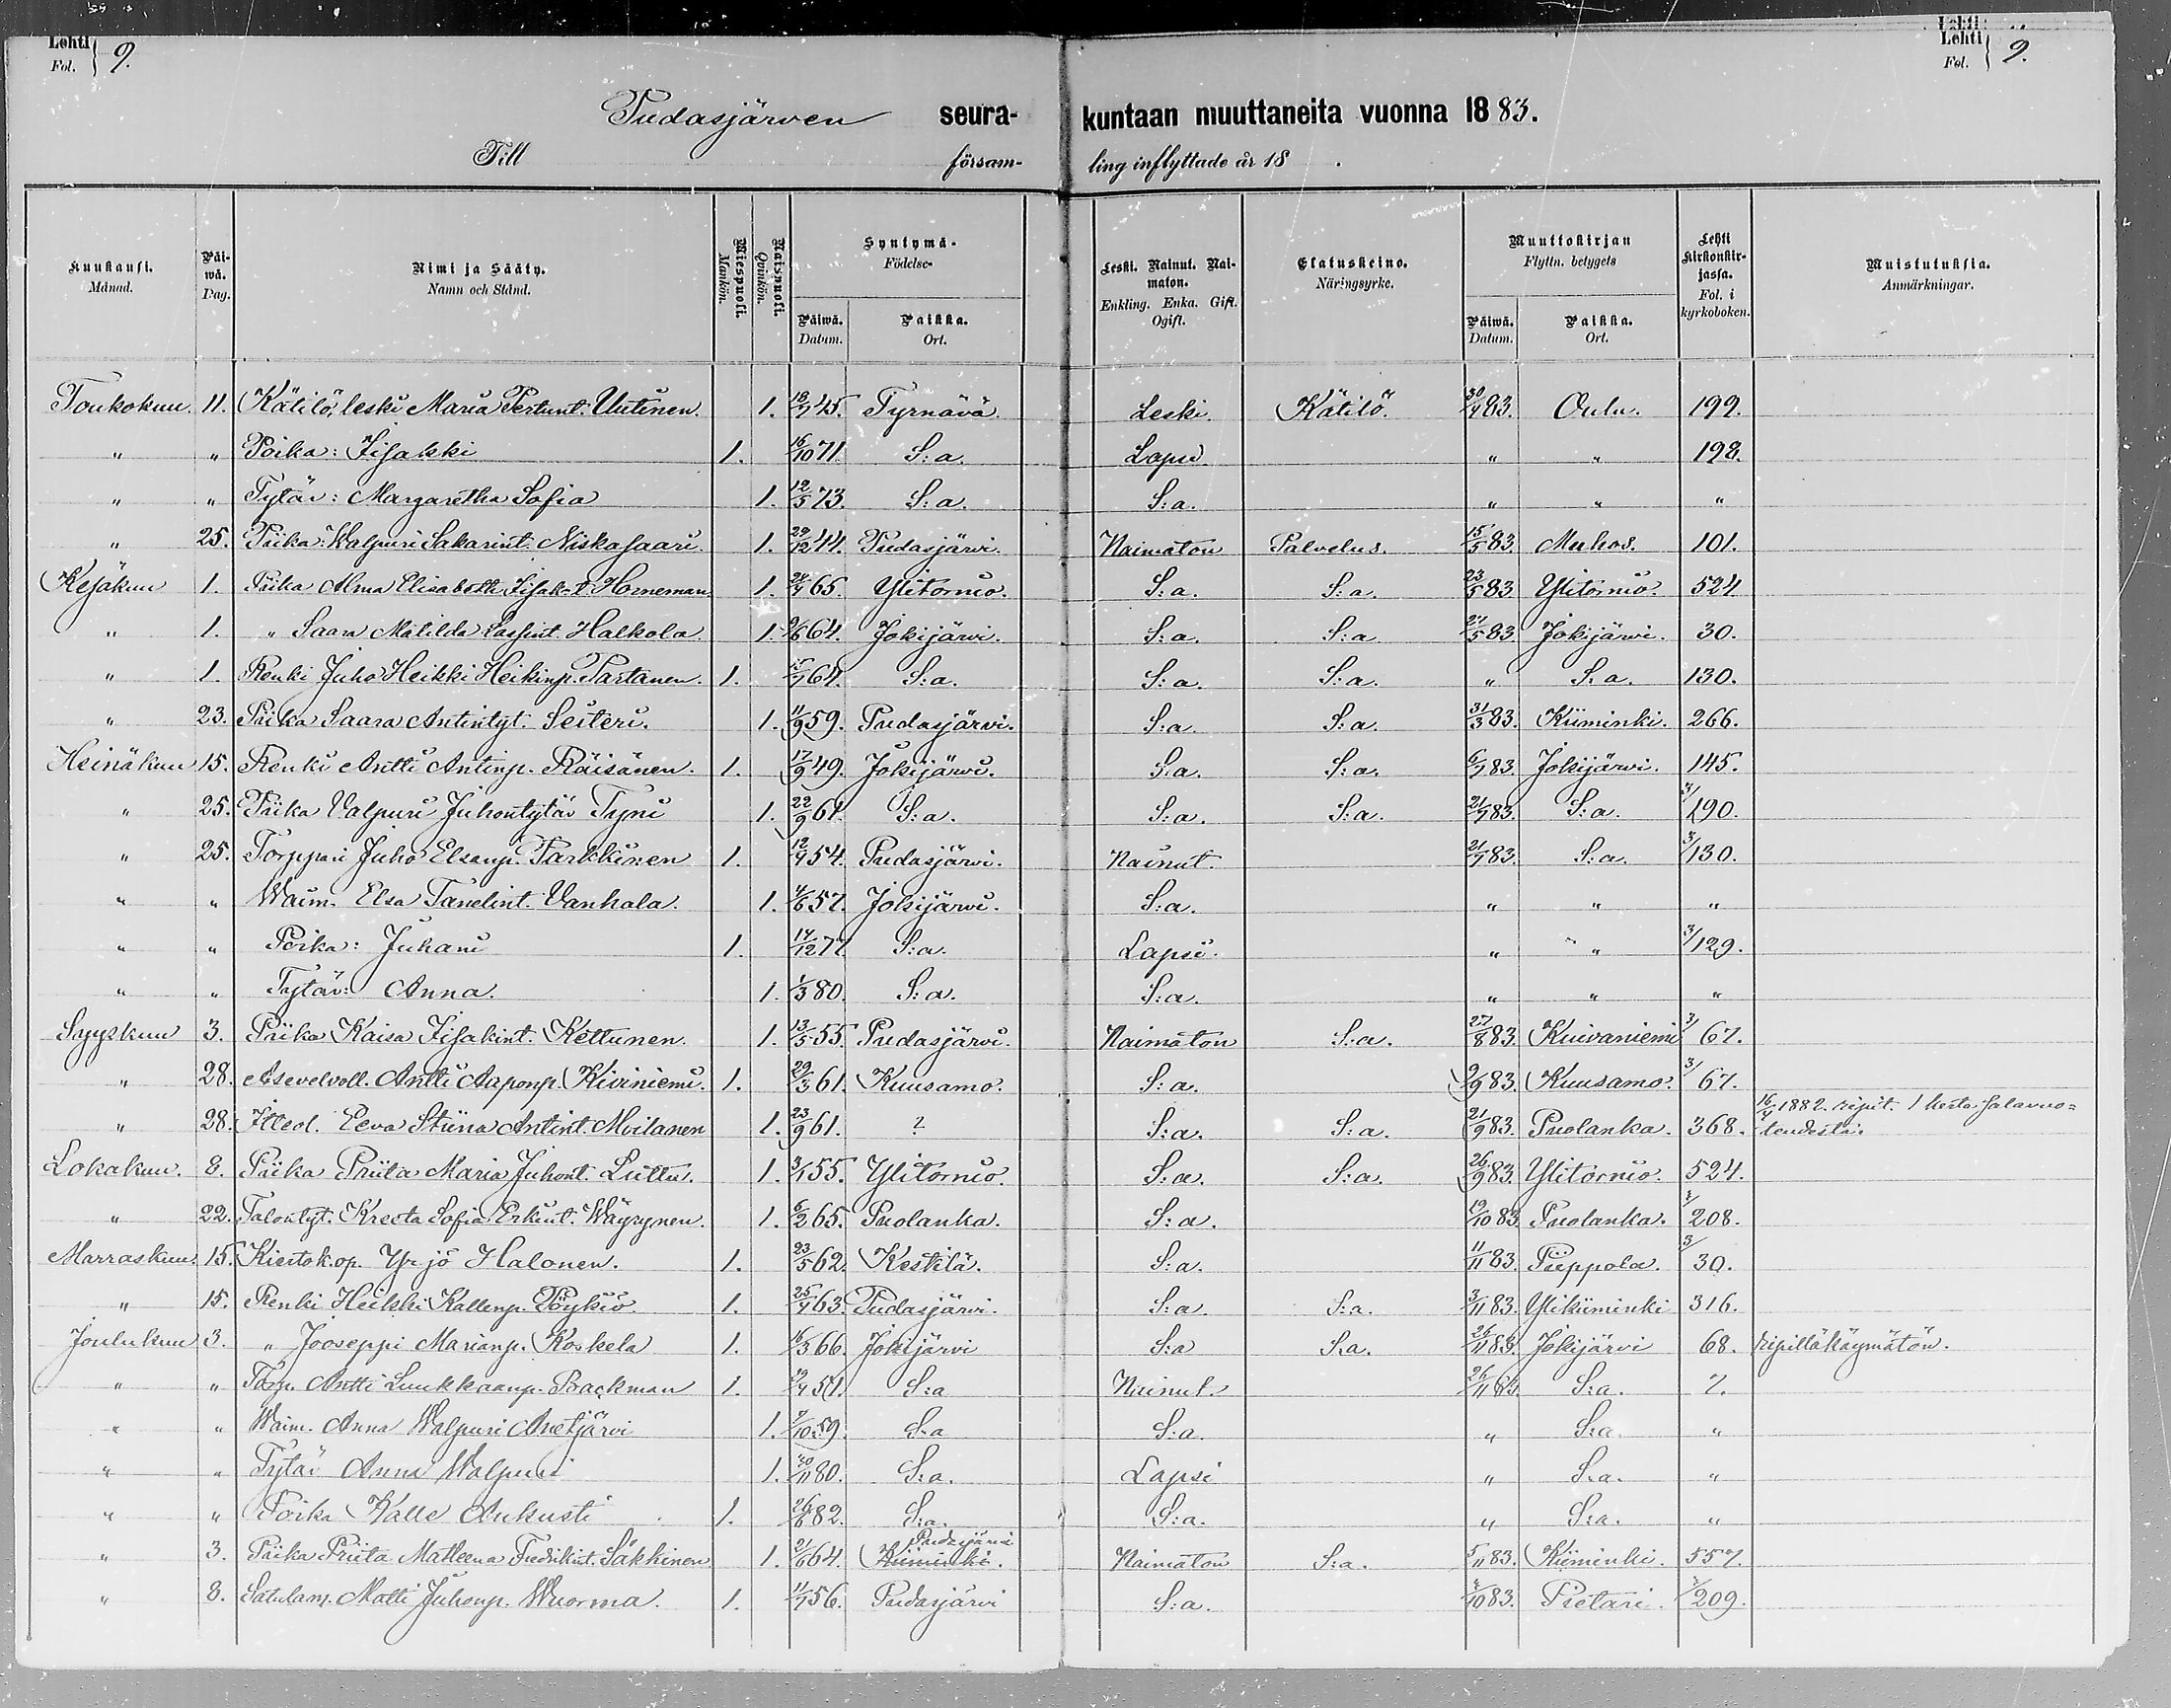 Lehti 9.
Fol.
Lehti 9.
Fol.
Pudasjärven seurakuntaan muuttaneita vuonna 1883.
Till församling inflyttade år 18 .
Kuukausi. Månad. Päiwä. Dag. Nimi ja Sääty. Namn och Stånd. Miespuoli. Mankön. Naispuoli. Qvinkön. Syntymä- Födelse- Päiwä. Datum. Paikka. Ort. Leski. Nainut. Naimaton. Enkling. Enka. Gift. Ogift. Elatuskeino. Näringsyrke. Muuttokirjan Flyttn. betygets Päiwä. Datum. Paikka. Ort. Lehti kirkonkirjassa. Fol. i kyrkoboken. Muistutuksia. Anmärkningar.
Toukokuu 11. Kätilö, leski Maria Pertunt. Uutinen. 1. 18/7 45. Tyrnävä Leski. Kätilö 30/4 83. Oulu. 199.
" " Poika: Iisakki 1. 16/10 71. S:a. Lapsi " " 198.
" " Tytär: Margaretha Sofia 1. 12/5 73. S:a. S:a. " " "
" 25. Piika Walpuri Sakarint. Niskasaari. 1. 29/12 44. Pudasjärvi Naimaton Palvelus. 15/5 83. Muhos. 101.
Kesäkuu 1. Piika Alma Elisabeth Iisak-t. Horneman. 1. 65. Ylitornio. S:a. S:a. 23/5 83 Ylitornio. 524
" 1. " Saara Matilda Lassint. Halkola 1. 64. Jokijärvi. S:a. S:a 27/5 83. Jokijärvi. 30.
" 1. Renki Juho Heikki Heikinp. Partanen. 1. 64. S:a. S:a. S:a. " S:a. 130.
" 23. Piika Saara Antintyt. Seiteri. 1. 11/9 59. Pudasjärvi. S:a. S:a. 31/3 83. Kiiminki. 266.
Heinäkuu 15. Renki Antti Antinp. Räisänen. 1. 17/9 49. Jokijärvi. S:a. S:a. 6/7 83. Jokijärvi. 145.
" 25. Piika Valpuri Juhontytär Tyni 1. 22/9 61. S:a. S:a. S:a. 21/7 83. S:a. 190.
" 25. Torppari Juho Elsanp. Parkkinen 1. 12/4 54. Pudasjärvi. Nainut. 21/7 83. S:a. 3/130.
" " Waim. Elsa Tanelint. Vanhala. 1. 4/6 57. Jokijärvi. S:a. " " "
" " Poika: Juhani 1. 14/12 77. S:a. Lapsi. " " 3/129.
" " Tytär: Anna. 1. 1/3 80. S:a. S:a. " " "
Syyskuu 3. Piika Kaisa Iisakint. Kettunen. 1. 13/5 55. Pudasjärvi. Naimaton S:a. 27/8 83. Kuivaniemi 3/67.
" 28. Asevelvoll. Antti Aaponp. Kiviniemi. 1. 29/3 61. Kuusamo. S:a. 9/9 83. Kuusamo. 3/67.
" 28. Itleol. Eeva Stiina Antint. Moilanen 1. 23/9 61. ? S:a. S:a. 21/9 83. Puolanka. 368. 16/4 1882. ripit. 1 kerta salavuoteudesta.
Lokakuu. 8. Piika Priita Maria Juhont. Liittu. 1. 3/1 55. Ylitornio. S:a. S:a. 26/9 83. Ylitornio. 524.
" 22. Talontyt. Kreeta Sofia Erkint. Wäyrynen. 1. 6/2 65. Puolanka. S:a. 19/10 83. Puolanka. 208.
Marraskuu. 15. Kiertok.op. Yrjö Halonen. 1. 23/5 62. Kestilä. S:a. 11/11 83. Piippola. 3/30.
" 15. Renki Heikki Kallenp. Pöykiö 1. 25/4 63. Pudasjärvi. S:a. S:a. 3/11 83. Ylikiiminki 316.
Joulukuu 3. " Jooseppi Marianp. Koskela 1. 16/3 66. Jokijärvi S:a S:a. 26/11 83. Jokijärvi 68. ripilläkäymätön.
" " Torp. Antti Luukkaanp. Backman 1. 51. S:a Nainut. 26/11 83. S:a. 7.
" " Waim. Anna Walpuri Anetjärvi 1. 59. S:a S:a. " S:a. "
" " Tytär Anna Walpuri 1. 80. S:a. Lapsi " S:a. "
" " Poika Kalle Aukusti 1. 26/6 82. S:a. S:a. " S:a. "
" 3. Piika Priita Matleena Fredrikint. Säkkinen 1. 21/6 64. Kiiminki. Pudasjärvi Naimaton S:a. 5/11 83. Kiiminki. 557.
" 8. Satulam. Matti Juhonp. Wuorma. 1. 11/7 56. Pudasjärvi S:a. 83. Pietari. 209.